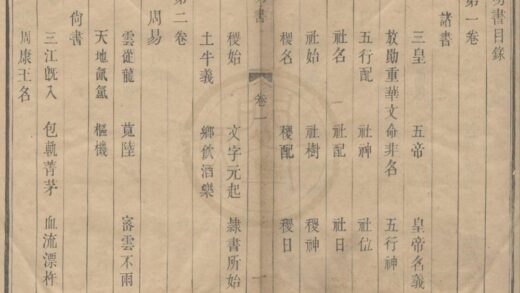 書目錄
第一卷
諸書
三皇 五帝 皇帝名義
放勛重華文命非名 五行神
五行配 社神 社位
社名 社配 社日
社始 社樹 稷神
稷名 稷配 稷日
書 卷一 一
稷始 文字元起 隸書所始
土牛義 鄉飲酒樂
第二卷
周易
雲從龍 莧陸 密雲不雨
天地氤氳 樞機
尙書
三江旣入 包匭菁茅 血流漂杵
周康王名